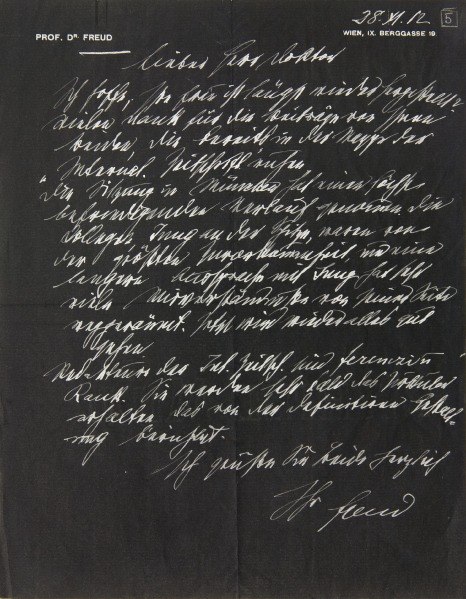 28 XI. 12
5
PROF. Dr. FREUD
WIEN, IX. BERGGASSE 19
Lieber Herr Doktor
Ich hoffe, Ihre Frau ist längst wieder hergestellt.
Vielen Dank für die Beiträge von Ihnen
beiden, die bereits in der Mappe der
Internat. Zeitschrift ruhen.
Die Sitzung in München hat einen höchst
befriedigenden Verlauf genommen. Die
Collegen, Jung an der Spitze, waren von
der größten Zuvorkommenheit und eine
längere Aussprache mit Jung hat sehr
viele Mißverständnisse von seiner Seite
weggeräumt. Jetzt wird wieder alles gut
gehen.
Redakteure der Int. Zeitsch. sind Ferenczi u
Rank. Sie werden sehr bald das Zirkular
erhalten das von der definitiven
berichtet.
Ich grüße Sie beide herzlich
Ihr Freud